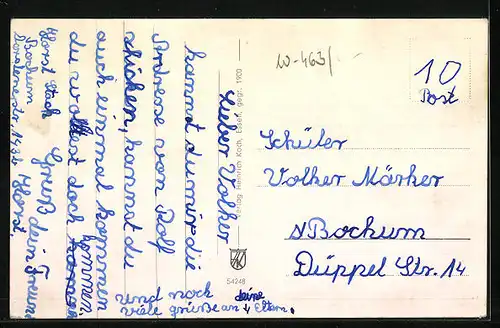 W-463/-
10
Post
Lieber Volker
kannst du mir die
Adresse von Rolf
schicken, kannst du
auch einmal kommen
du wolltest doch kommen
kommen.
Gruß dein Freund
Horst.
Horst
Bochum
143b
und noch deine
viele grüße an Eltern.
Verlag Heinrich Koch, Essen, gegr. 1903
54248
Schüler
Volker Märker
Bochum
Düppel Str. 14